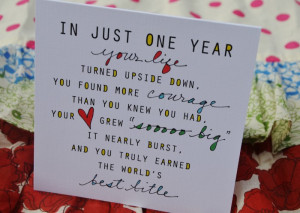 IN JUST ONE YEAR
your life
TURNED UPSIDE DOWN.
YOU FOUND MORE courage
THAN YOU KNEW YOU HAD.
YOUR GREW "sooooo big"
IT NEARLY BURST.
AND YOU TRULY EARNED
THE WORLD'S
best title